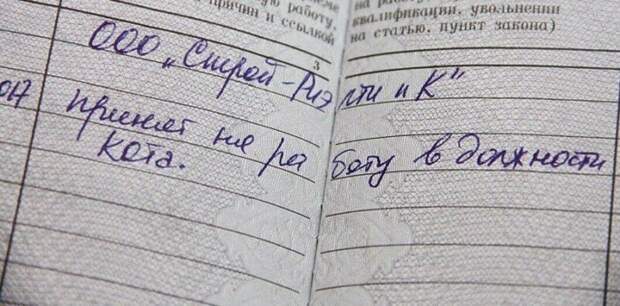 ую работу,
причин и ссылкой
квалификации, увольнении
на статью, пункт закона)
3
ООО „Строй-Риэлти и К"
017 принят на работу в должности
Кота.